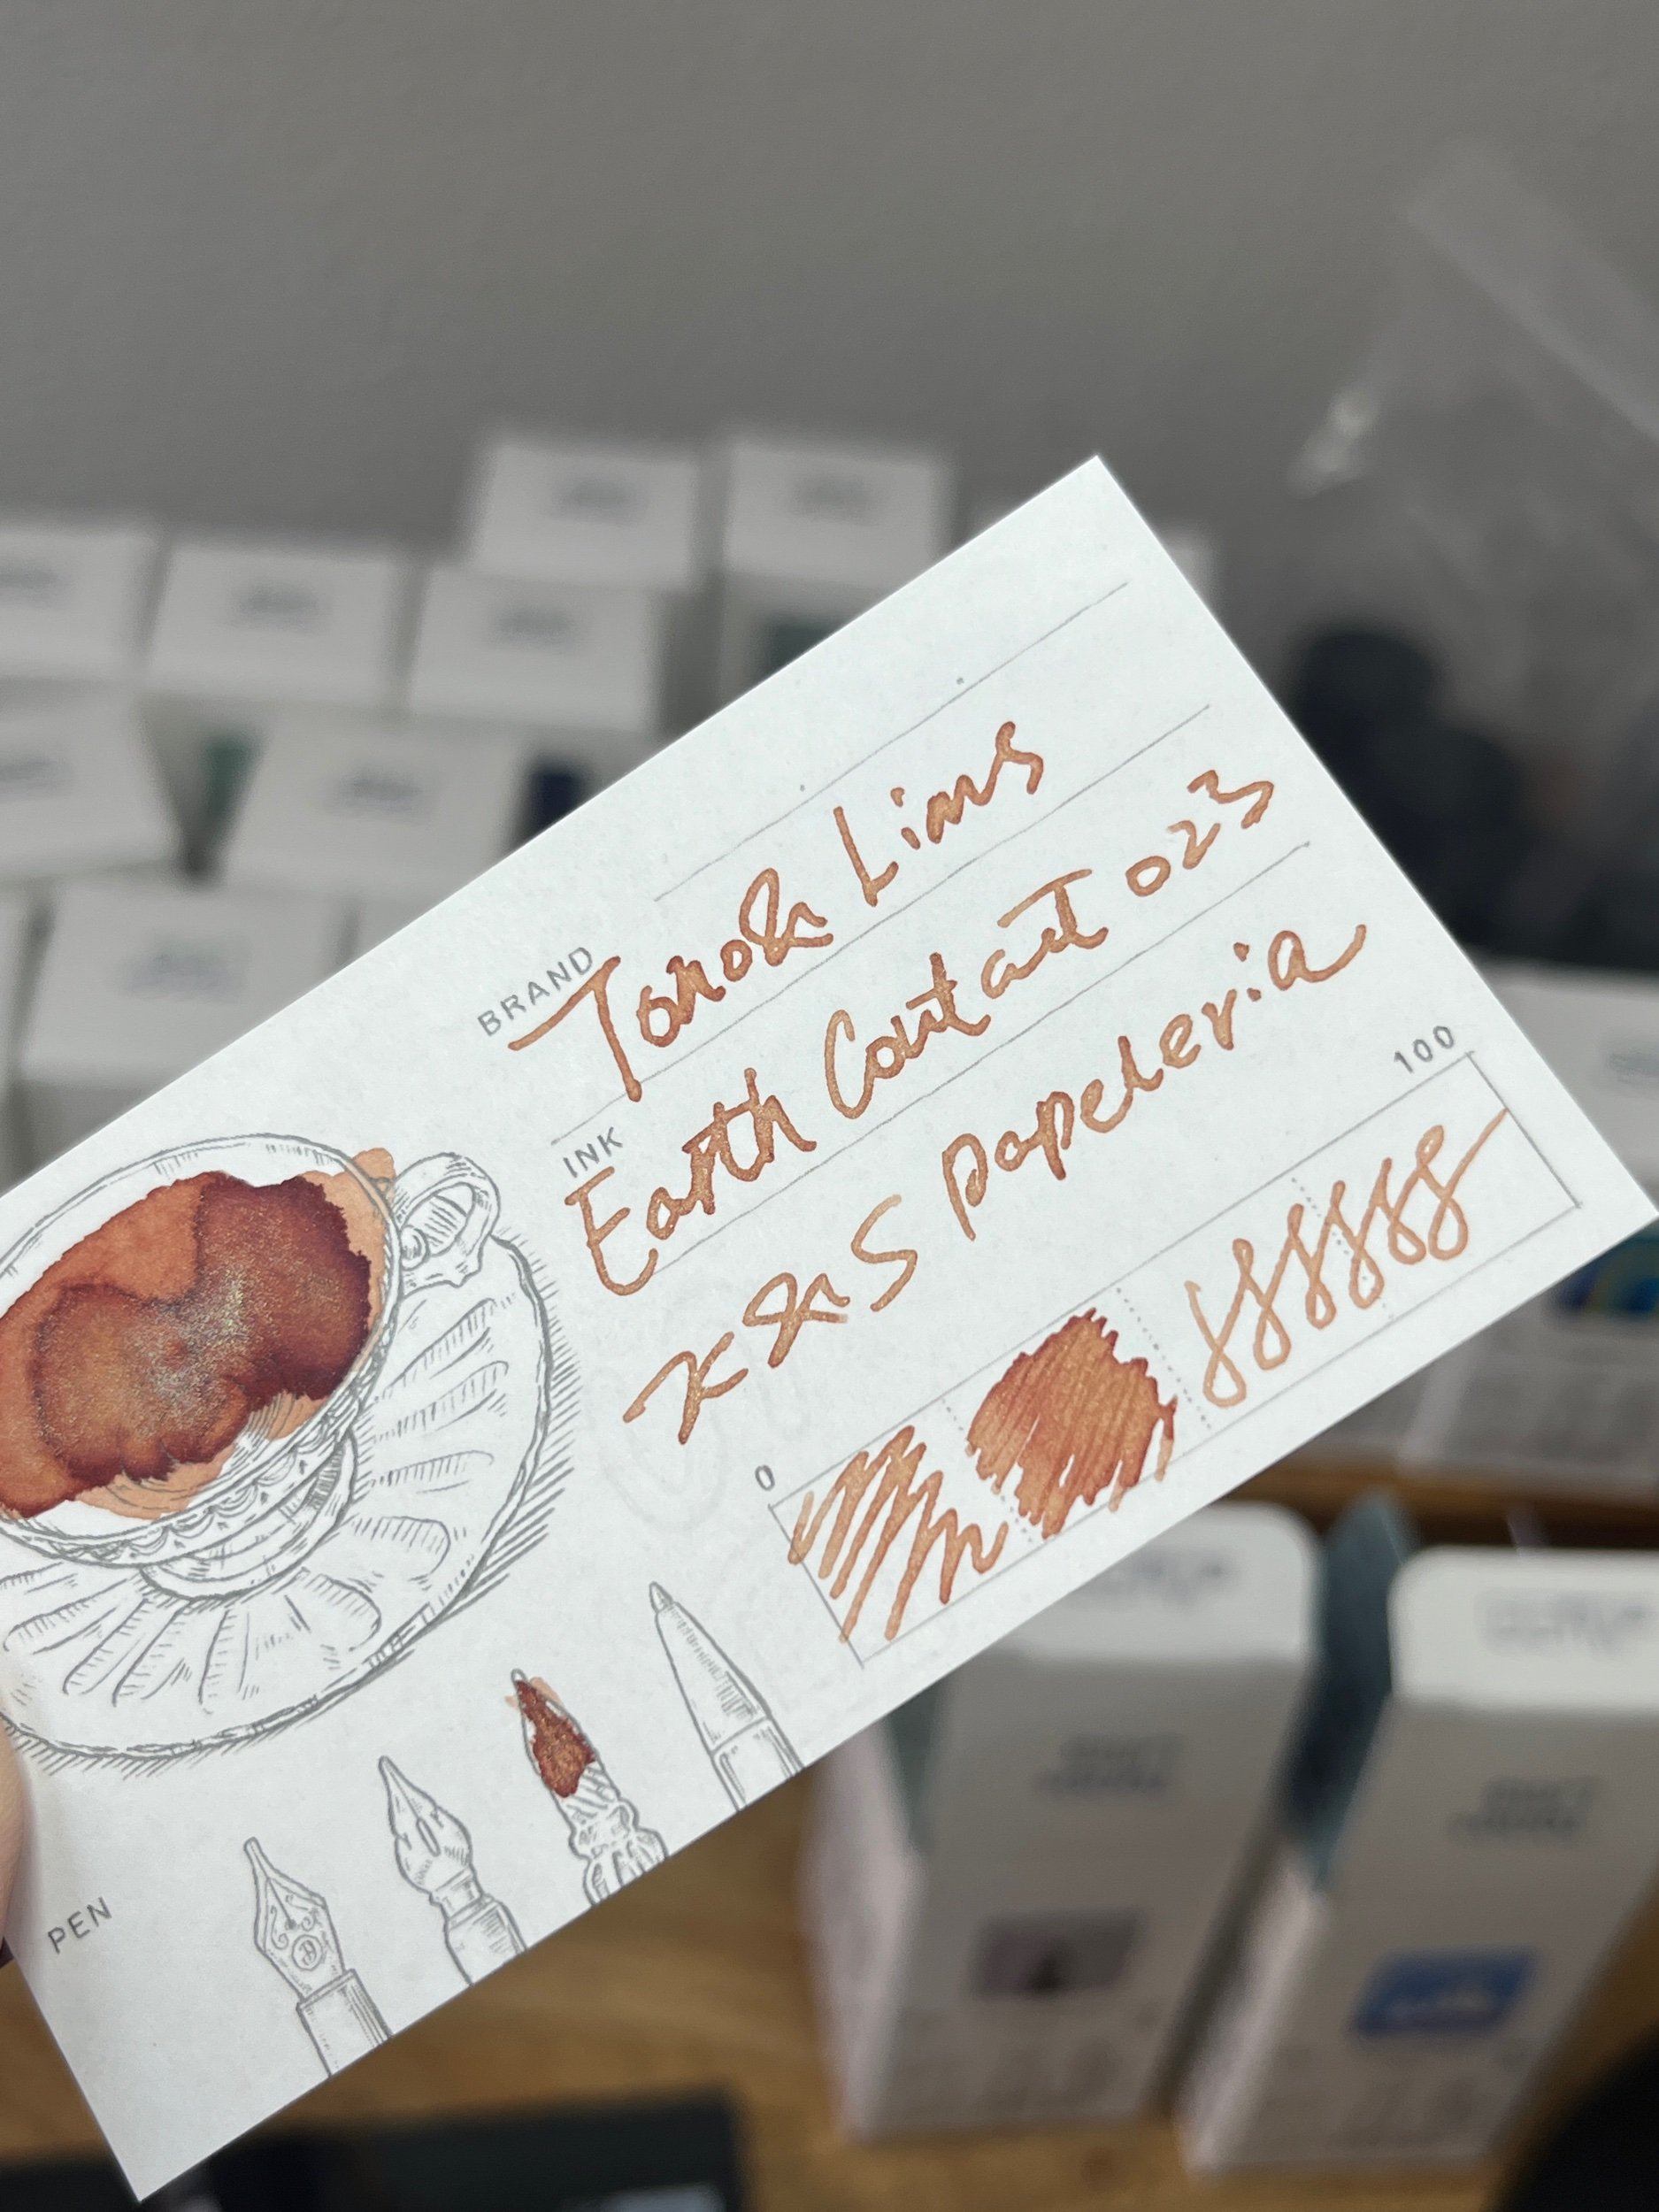 BRAND
Tono & Lims
INK
Earth Coutant 023
x & S papeleria
0 100
PEN